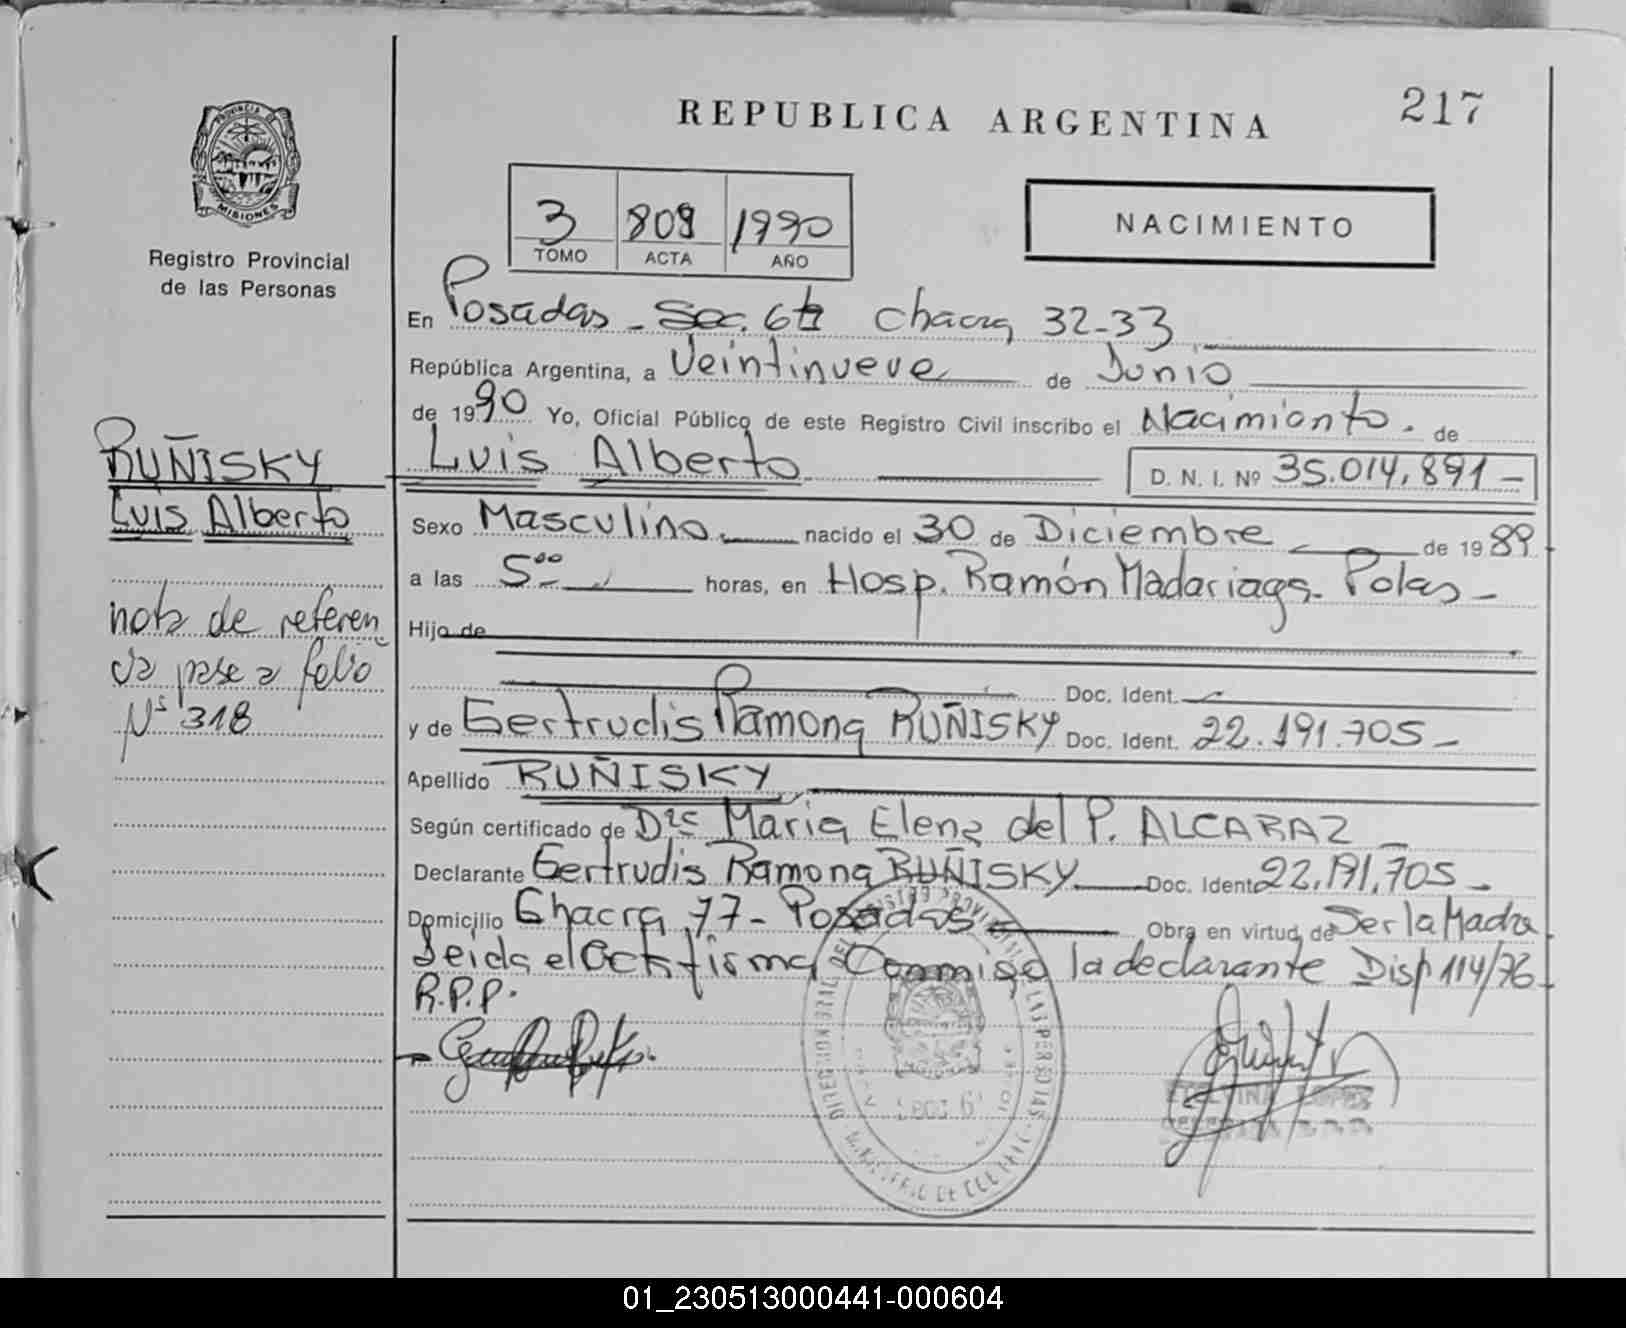 217
REPUBLICA ARGENTINA
PROVINCIA DE
MISIONES
Registro Provincial
de las Personas
3 809 1990
TOMO ACTA AÑO
NACIMIENTO
En Posadas - Sec. 6ta Chacra 32-33
República Argentina, a Veintinueve de Junio
de 1990 Yo, Oficial Público de este Registro Civil inscribo el Nacimiento. de
Luis Alberto D. N. I. Nº 35.014.891 -
RUÑISKY
Luis Alberto
nota de referen
cia pase a folio
Nº 318
Sexo Masculino nacido el 30 de Diciembre de 1989
a las 5 00 horas, en Hosp. Ramón Madariaga - Pdas -
Hijo de
Doc. Ident.
y de Gertrudis Ramona RUÑISKY Doc. Ident. 22.191.705 -
Apellido RUÑISKY
Según certificado de Dra Maria Elena del P. ALCARAZ -
Declarante Gertrudis Ramona RUÑISKY Doc. Ident 22.191.705 -
Domicilio Chacra 77 - Posadas Obra en virtud de Ser la Madre
Leida el Acta firma Conmigo la declarante Disp 114/76
R.P.P.
LOPEZ
01_230513000441-000604